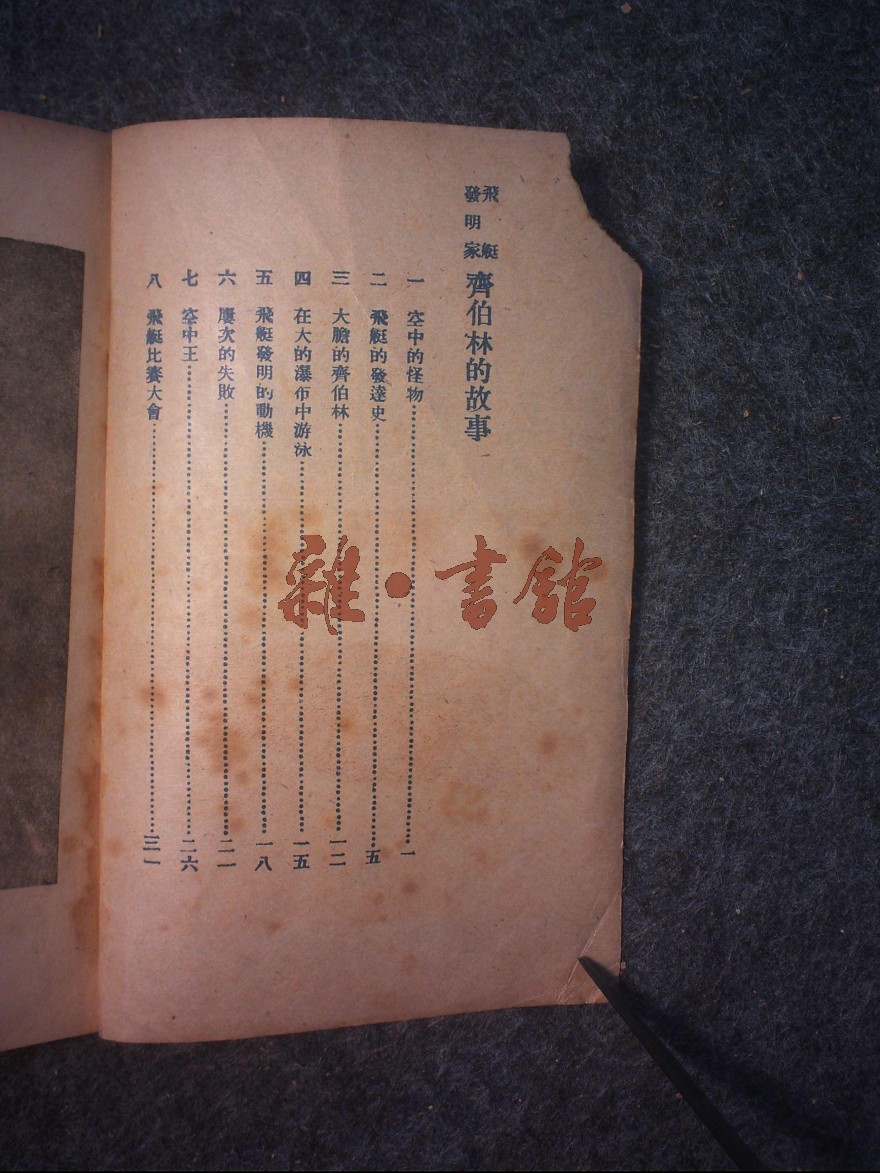 飛艇
發明家
齊伯林的故事
一 空中的怪物 一
二 飛艇的發達史 五
三 大膽的齊伯林 一二
四 在大的瀑布中游泳 一五
五 飛艇發明的動機 一八
六 屢次的失敗 二一
七 空中王 二六
八 飛艇比賽大會 三一
雜·書館